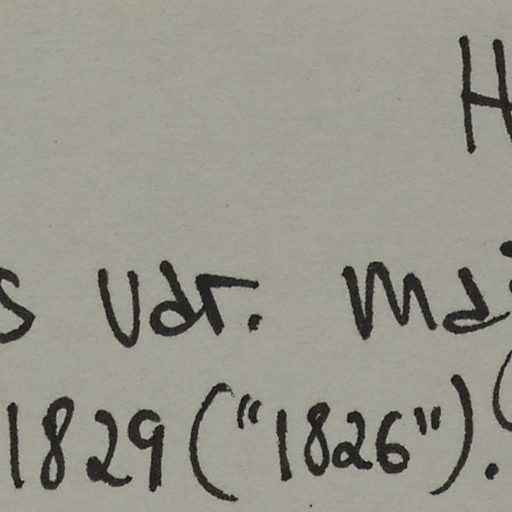 H
s var. ma
1829 ("1826"). (